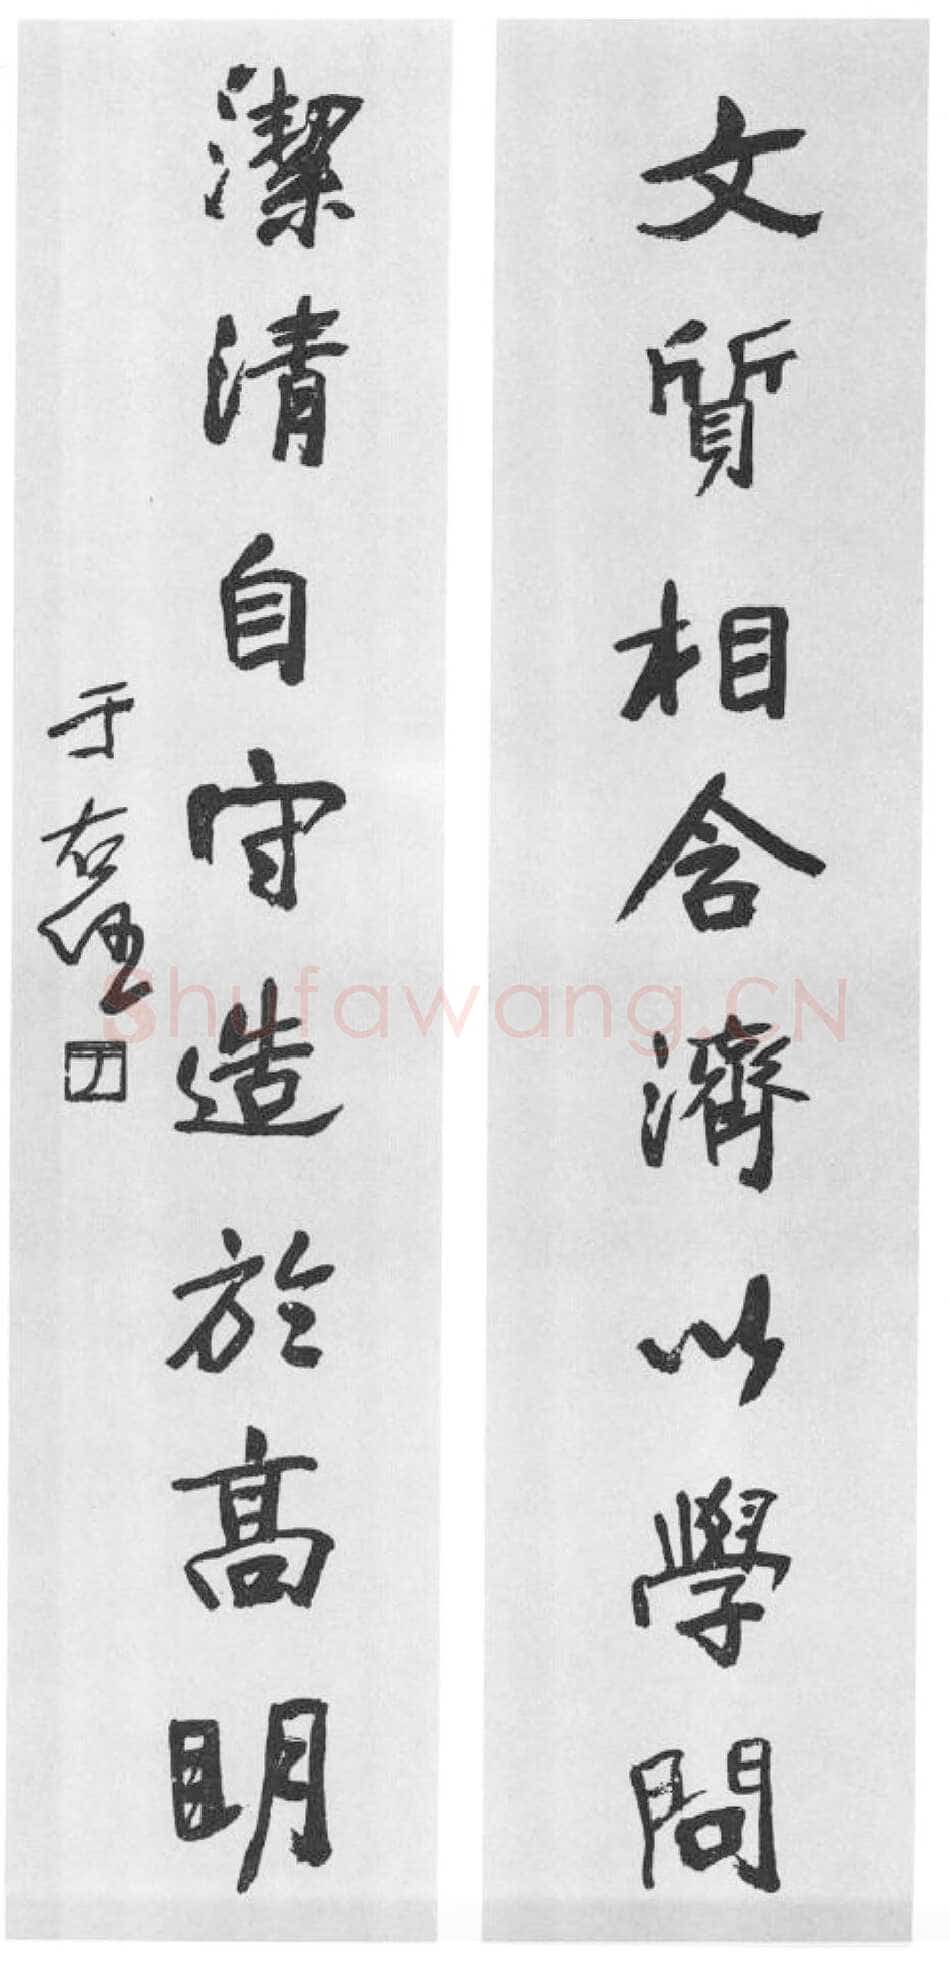 文質相含濟以學問
潔清自守造於高明
于右任
Shufawang.CN